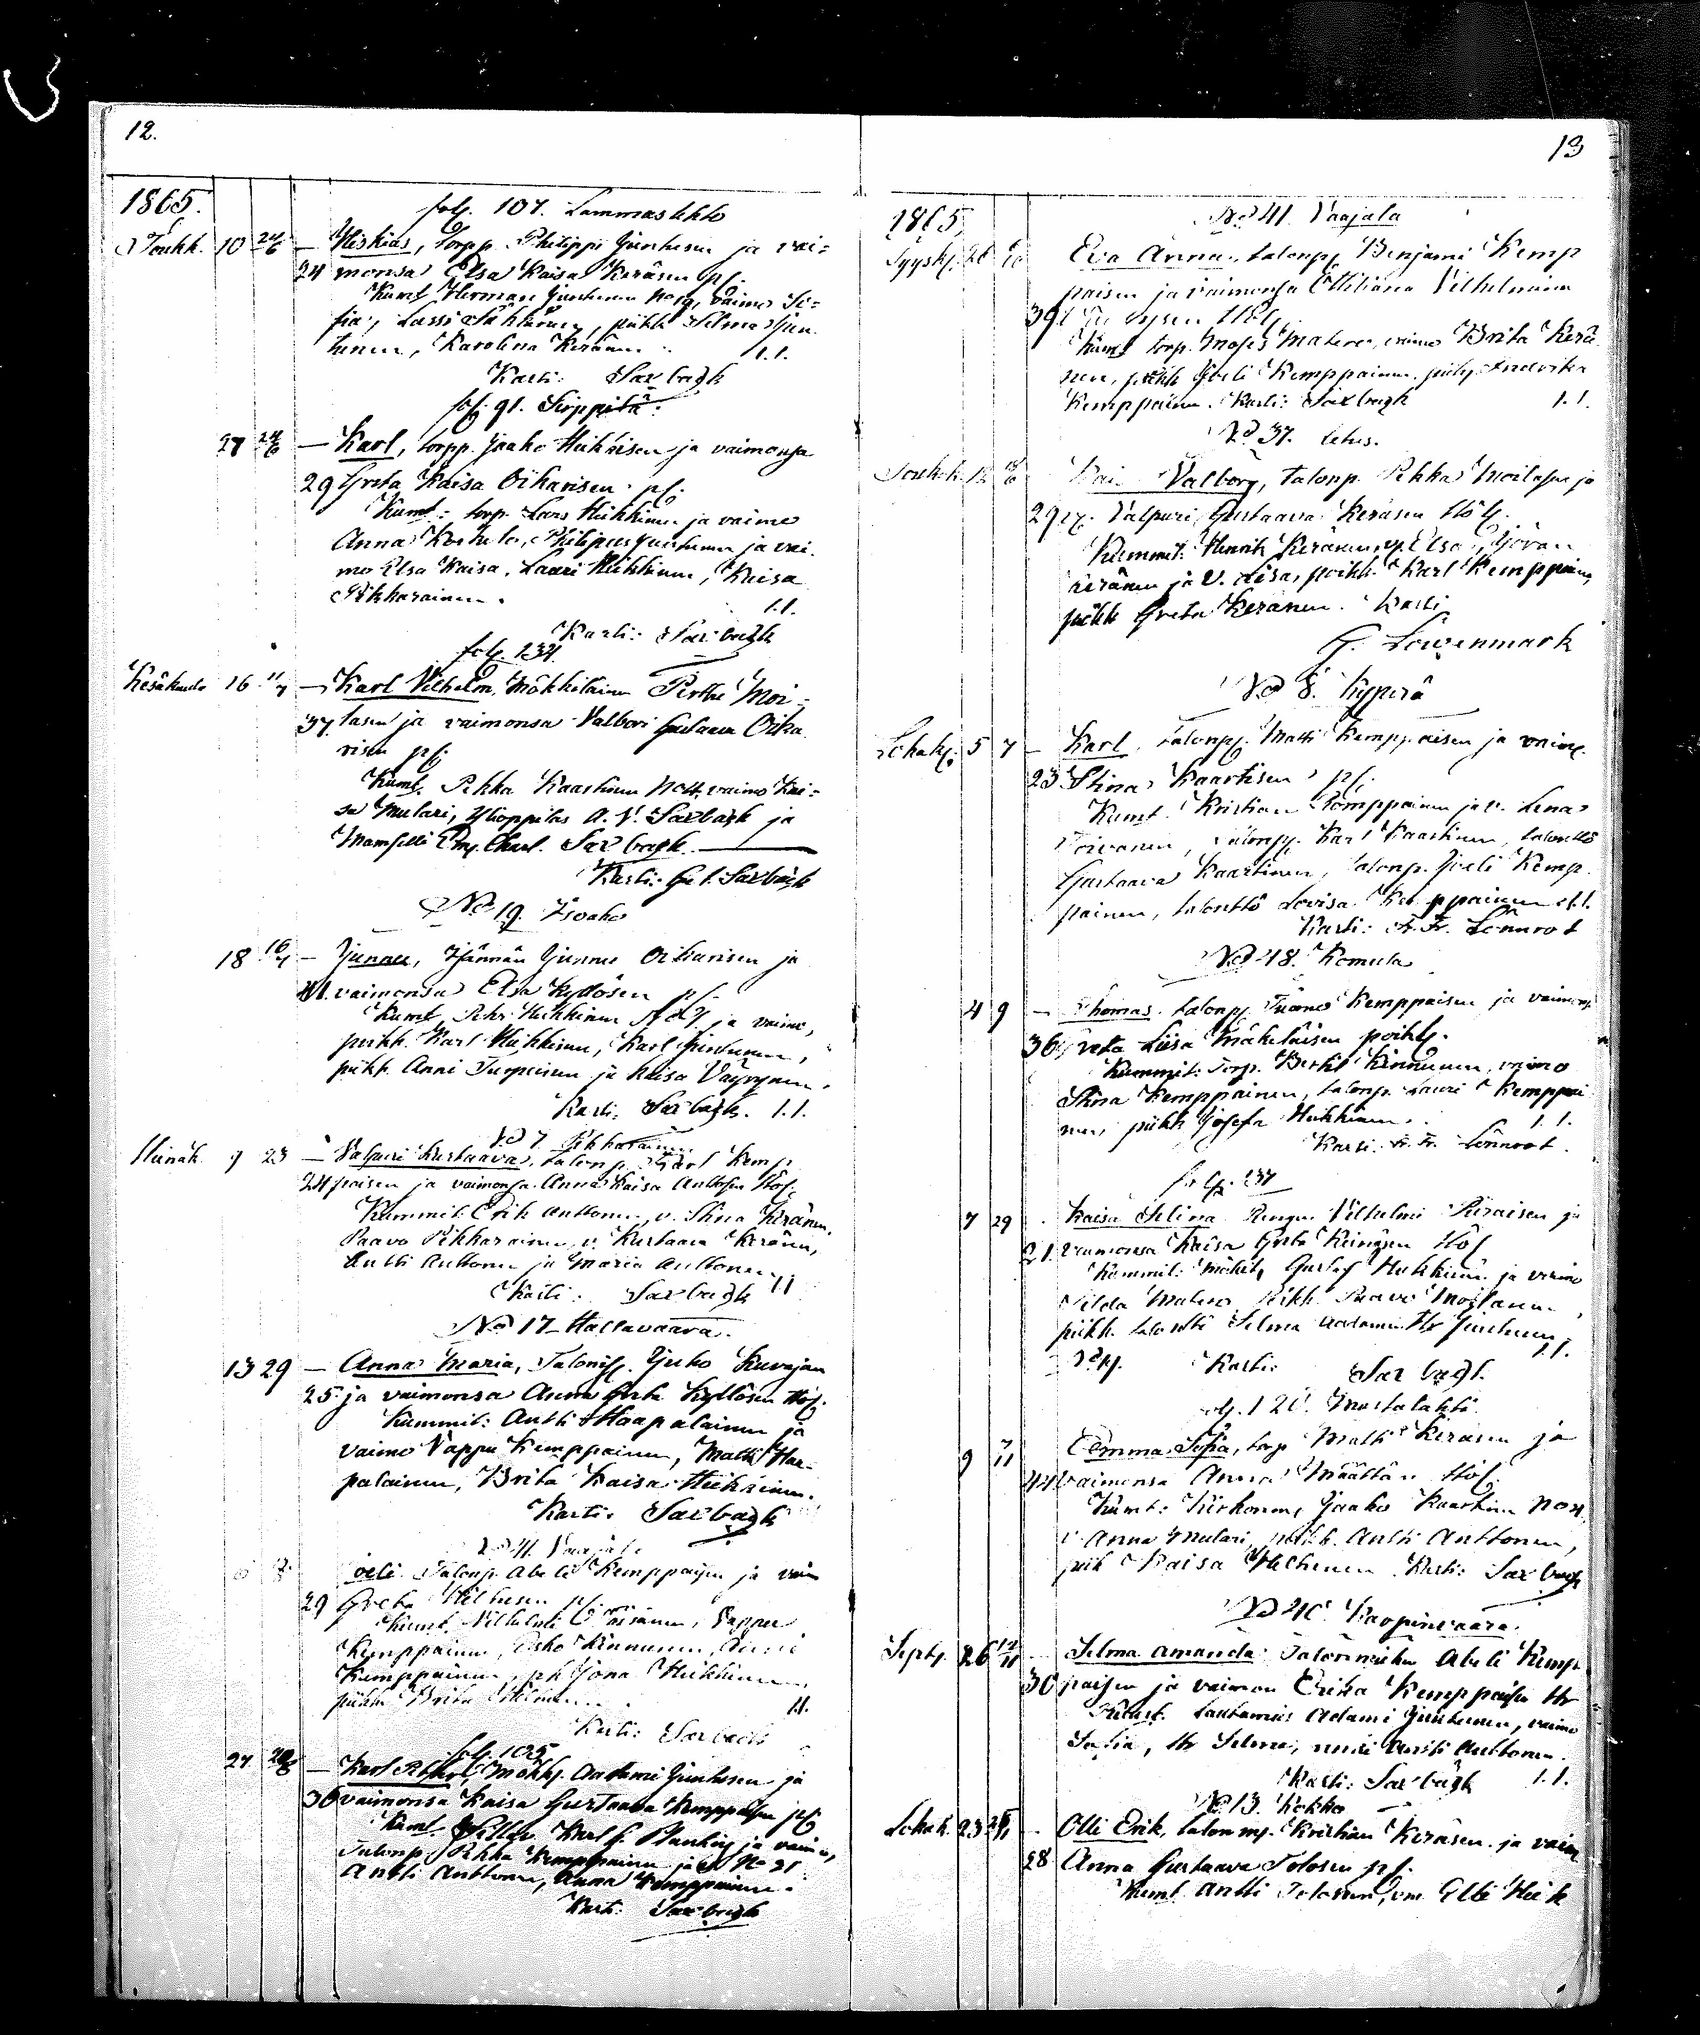 12.
1865.
folj. 107. Lammaslehto
Toukk. 10 24/6 — Hiskias, torpp. Philippi Juntusen ja vai=
24 monsa Elsa Kaisa Keräsen pf.
Kumt Herman Juntunen No 19, vaimo So=
fia, Lassi, piika Selma Jun
tunen, Karolina Keränen 1.1.
Kasti: Saxbagk
folj. 91. Sirppilä.
27 24/6 — Karl, torpp. Jaako Heikkisen ja vaimonsa
29 Greta Kaisa Oikarisen pf.
Kumt: torp. Lars Heikkinen ja vaimo
Anna, Philipus Juntunen ja vai.
mo Elsa Kaisa, Lauri Heikkinen, Kaisa
Pikkarainen. 1.1.
Kasti: Saxbagk
folj. 134.
Kesäkuulo 16 11/7 — Karl Vilhelm, Mökkiläinen Perttu Moi=
37 lasen ja vaimonsa Valbori Gustaava Oika
risen pf.
Kumt. Pekka Kaartinen No 4, vaimo Kai=
sa Mulari, Ylioppilas A. V. Saxbagk ja
Mamselli Emy. Charl. Saxbagk.
Kasti: G. L. Saxbagk
No 19. Isoaho
18 16/7 — Junnu, Isännän Junnu Oikarisen ja
41. vaimonsa Elsa Kyllösen pf.
Kumt, Petr Heikkinen No 7 ja vaimo,
poikk. Karl Heikkinen, Karl Juntunen,
piikk. Anni Tuopainen ja Kaisa Väyrynen.
Kasti. Saxbagk. 1.1.
No 7 Pikkarainen
Heinäk. 9 23 — Valpuri Kustaava, talonp. Karl Kemp
24 paisen ja vaimonsa Anna Kaisa Anttosen Höf.
Kummit: Erik Anttonen, v. Stina Keränen,
Paavo Pikkarainen, v. Kustaava Keränen,
Antti Anttonen ja Maria Anttonen
Kasti: Saxbagk 11
No 17 Hallavaara.
13 29 — Anna Maria, Talonp. Juho Kuvajan
25 ja vaimonsa Anna Greta Kyllösen Höf.
Kummit: Antti Haapalainen ja
vaimo Vappu Kemppainen, Matti Haa=
palainen, Brita Kaisa Heikkinen.
Kasti: Saxbagk
No 41. Vaajala
Talonp. Abeli Kemppaisen ja vaim
29 Greta Heltusen pf.
Kumt. Vilhelmi Väisänen, Vappu
Kemppainen, Esko Kinnunen, Anni
Kemppainen, ph Jona Heikkinen
piika Brita 1.1.
Kasti: Saxbagk
folj. 105
27 20/8 — Karl Petter, Mökkj. Aadami Juntusen ja
36 vaimonsa Kaisa Gustaava Kemppaisen pf
Kumt. Karl G. Planting ja vaimo,
Talonp. Pekka Kemppainen ja v. No 21
Antti Anttonen, Anna Kemppainen.
Kasti: Saxbagk
13
1865.
No 41. Vaajala
Syysk. Eva Anna, talonp. Benjami Kemp
paisen ja vaimonsa Ottiliana Vilhelmina
39
Kumt torp. Moses Matero, vaimo Brita Kerä
nen, poikk Joeli Kemppainen, piik. Fredrika
Kemppainen. Kasti: Saxbagk 1.1.
No 37. Lehus.
Toukk. 12 Valborg, talonp. Pekka Moilasen ja
29 v. Valpuri Gustaava Keräsen Höf.
Kummit: Henrik Keränen, v. Elsa, Jöran
Keränen ja v. Lisa, poikk. Karl Kemppainen,
piikk Greta Keränen. Kasti
G. Löwenmark
No 8. Kyperä
Lokak. 5 7 — Karl, talonp. Matti Kemppaisen ja vaim.
23 Stina Kaartisen pf.
Kumt. Kristian Komppainen ja v. Lena
Toivanen, talonp. Karl Kaartinen, talonttö
Gustaava Kaartinen, talonp. Joeli Kemp
painen, talonttö Lovisa Kemppainen 1.1.
Kasti: A. Fr. Lönnrot
No 48. Komula
4 9 — Thomas, talonp. Tuomo Kemppaisen ja vaimons
36 Greta Liisa Mäkeläisen poikk.
Kummit: Torp. Bertil Kinnunen, vaimo
Stina Kemppainen, talonp. Lauri Kemppai
nen, piikk Josefa Heikkinen. 1.1.
Kasti: A. Fr. Lönnrot.
folj. 137
7 29 Kaisa Selina Rengin Vilhelmi Piiraisen ja
21. vaimonsa Kaisa Greta Höf
Kummit: Mökk. Gustaf Heikkinen ja vaimo
Hilda Matero, Pikk. Paavo Moilanen,
piikk. talontt. Selma Aadamin tr Juntunen,
Kasti: Saxbagk. 1.1.
folj. 120. Mustalahti
9 7/11 Emma Sofia, torp Matti Keräsen ja
44 vaimonsa Anna Määttän Höf.
Kumt: Kirkonm. Jaako Kaartinen No 4,
v Anna Mulari, poikk. Antti Anttonen,
piik Kaisa Heltunen. Kasti: Saxbagk
No 40. Kaupinvaara.
Septj. 26 12/11 Selma Amanda. Talonmiehen Abeli Kemp
30 paisen ja vaimon Erika Kemppaisen tr
Kumt. Lautamies Adami Juntunen, vaimo
Sofia, tr Selma, Antti Anttonen.
Kasti: Saxbagk 1.1.
No 13. Kokko
Lokak. 23 Olli Erik, talonmj. Kristian Keräsen ja vaim
28 Anna Gustaava Tolosen pf.
Kumt. Antti Tolonen, vm. Elli Heik